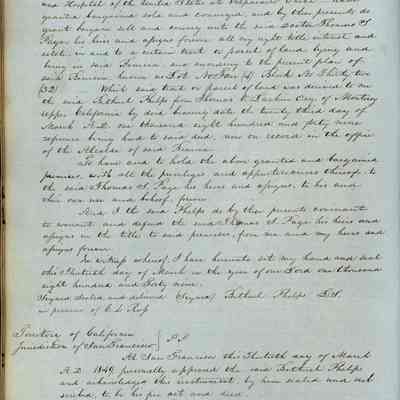 and Hospital of the United States at
granted bargained sold and conveyed, and by these presents do
grant bargain sell and convey unto the said Doctor Thomas S
Page his heirs and assigns forever all my right title interest and
estate in and to a certain tract or parcel of land lying and
being in said Benicia and according to the present plan of
said Benicia known as Lot No Four (4) Block No Thirty two
(32) Which said tract or parcel of land was deeded to me
the said Bethuel Phelps from Thomas O Larkin Esq. of Monterey
upper California by deed bearing date the twenty third day of
March A.D. one thousand eight hundred and forty nine
reference being had to said deed, now on record in the office
of the Alcalde of said Benicia
To have and to hold the above granted and bargained
premises, with all the privileges and appurtenances thereof, to
the said Thomas S. Page his heirs and assigns, to his and
their own use and behoof, forever
And I the said Phelps do by these presents, covenant
to warrant, and defend the said Thomas S. Page his heirs and
assigns in the title to said premises, from me and my heirs and
assigns forever
In witness whereof, I have hereunto set my hand and seal
this Thirtieth day of March in the year of our Lord one thousand
eight hundred and Forty nine.
Signed Sealed and delivered (Signed) Bethuel Phelps L.S.
in presence of C. L. Ross
Territory of California
Jurisdiction of San Francisco } S.S.
At San Francisco this Thirtieth day of March
A.D. 1849 personally appeared the said Bethuel Phelps
and acknowledged this instrument, by him sealed and sub
scribed, to be his free act and deed.